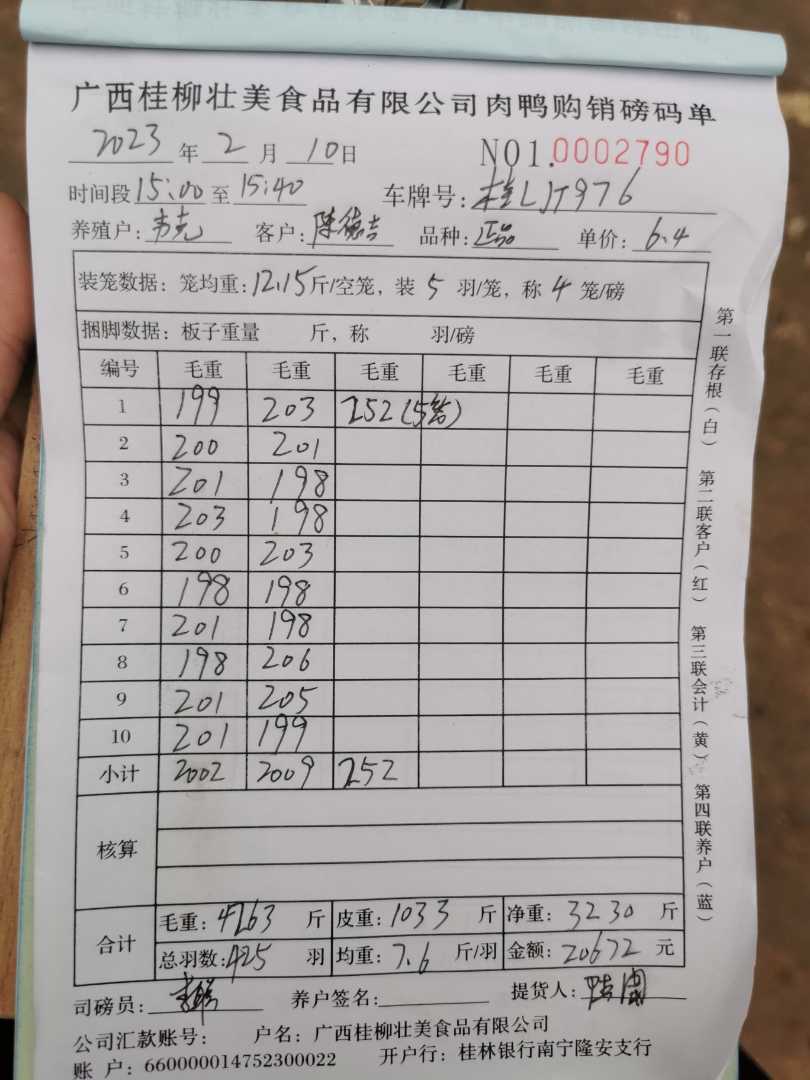 广西桂柳壮美食品有限公司肉鸭购销磅码单
2023 年 2 月 10 日 NO1.0002790
时间段 15:00 至 15:40 车牌号: 桂LJT976
养殖户: 韦克 客户: 陈德吉 品种: 正品 单价: 6.4
装笼数据: 笼均重: 12.15 斤/空笼, 装 5 羽/笼, 称 4 笼/磅
捆脚数据: 板子重量 斤, 称 羽/磅
编号 毛重 毛重 毛重 毛重 毛重 毛重
1 199 203 252(5笼)
2 200 201
3 201 198
4 203 198
5 200 203
6 198 198
7 201 198
8 198 206
9 201 205
10 201 199
小计 2002 2009 252
核算
合计 毛重: 4263 斤 皮重: 1033 斤 净重: 3230 斤
总羽数: 425 羽 均重: 7.6 斤/羽 金额: 20672 元
司磅员: 养户签名: 提货人:
公司汇款账号: 户名: 广西桂柳壮美食品有限公司
账 户: 660000014752300022 开户行: 桂林银行南宁隆安支行
第一联存根(白) 第二联客户(红) 第三联会计(黄) 第四联养户(蓝)